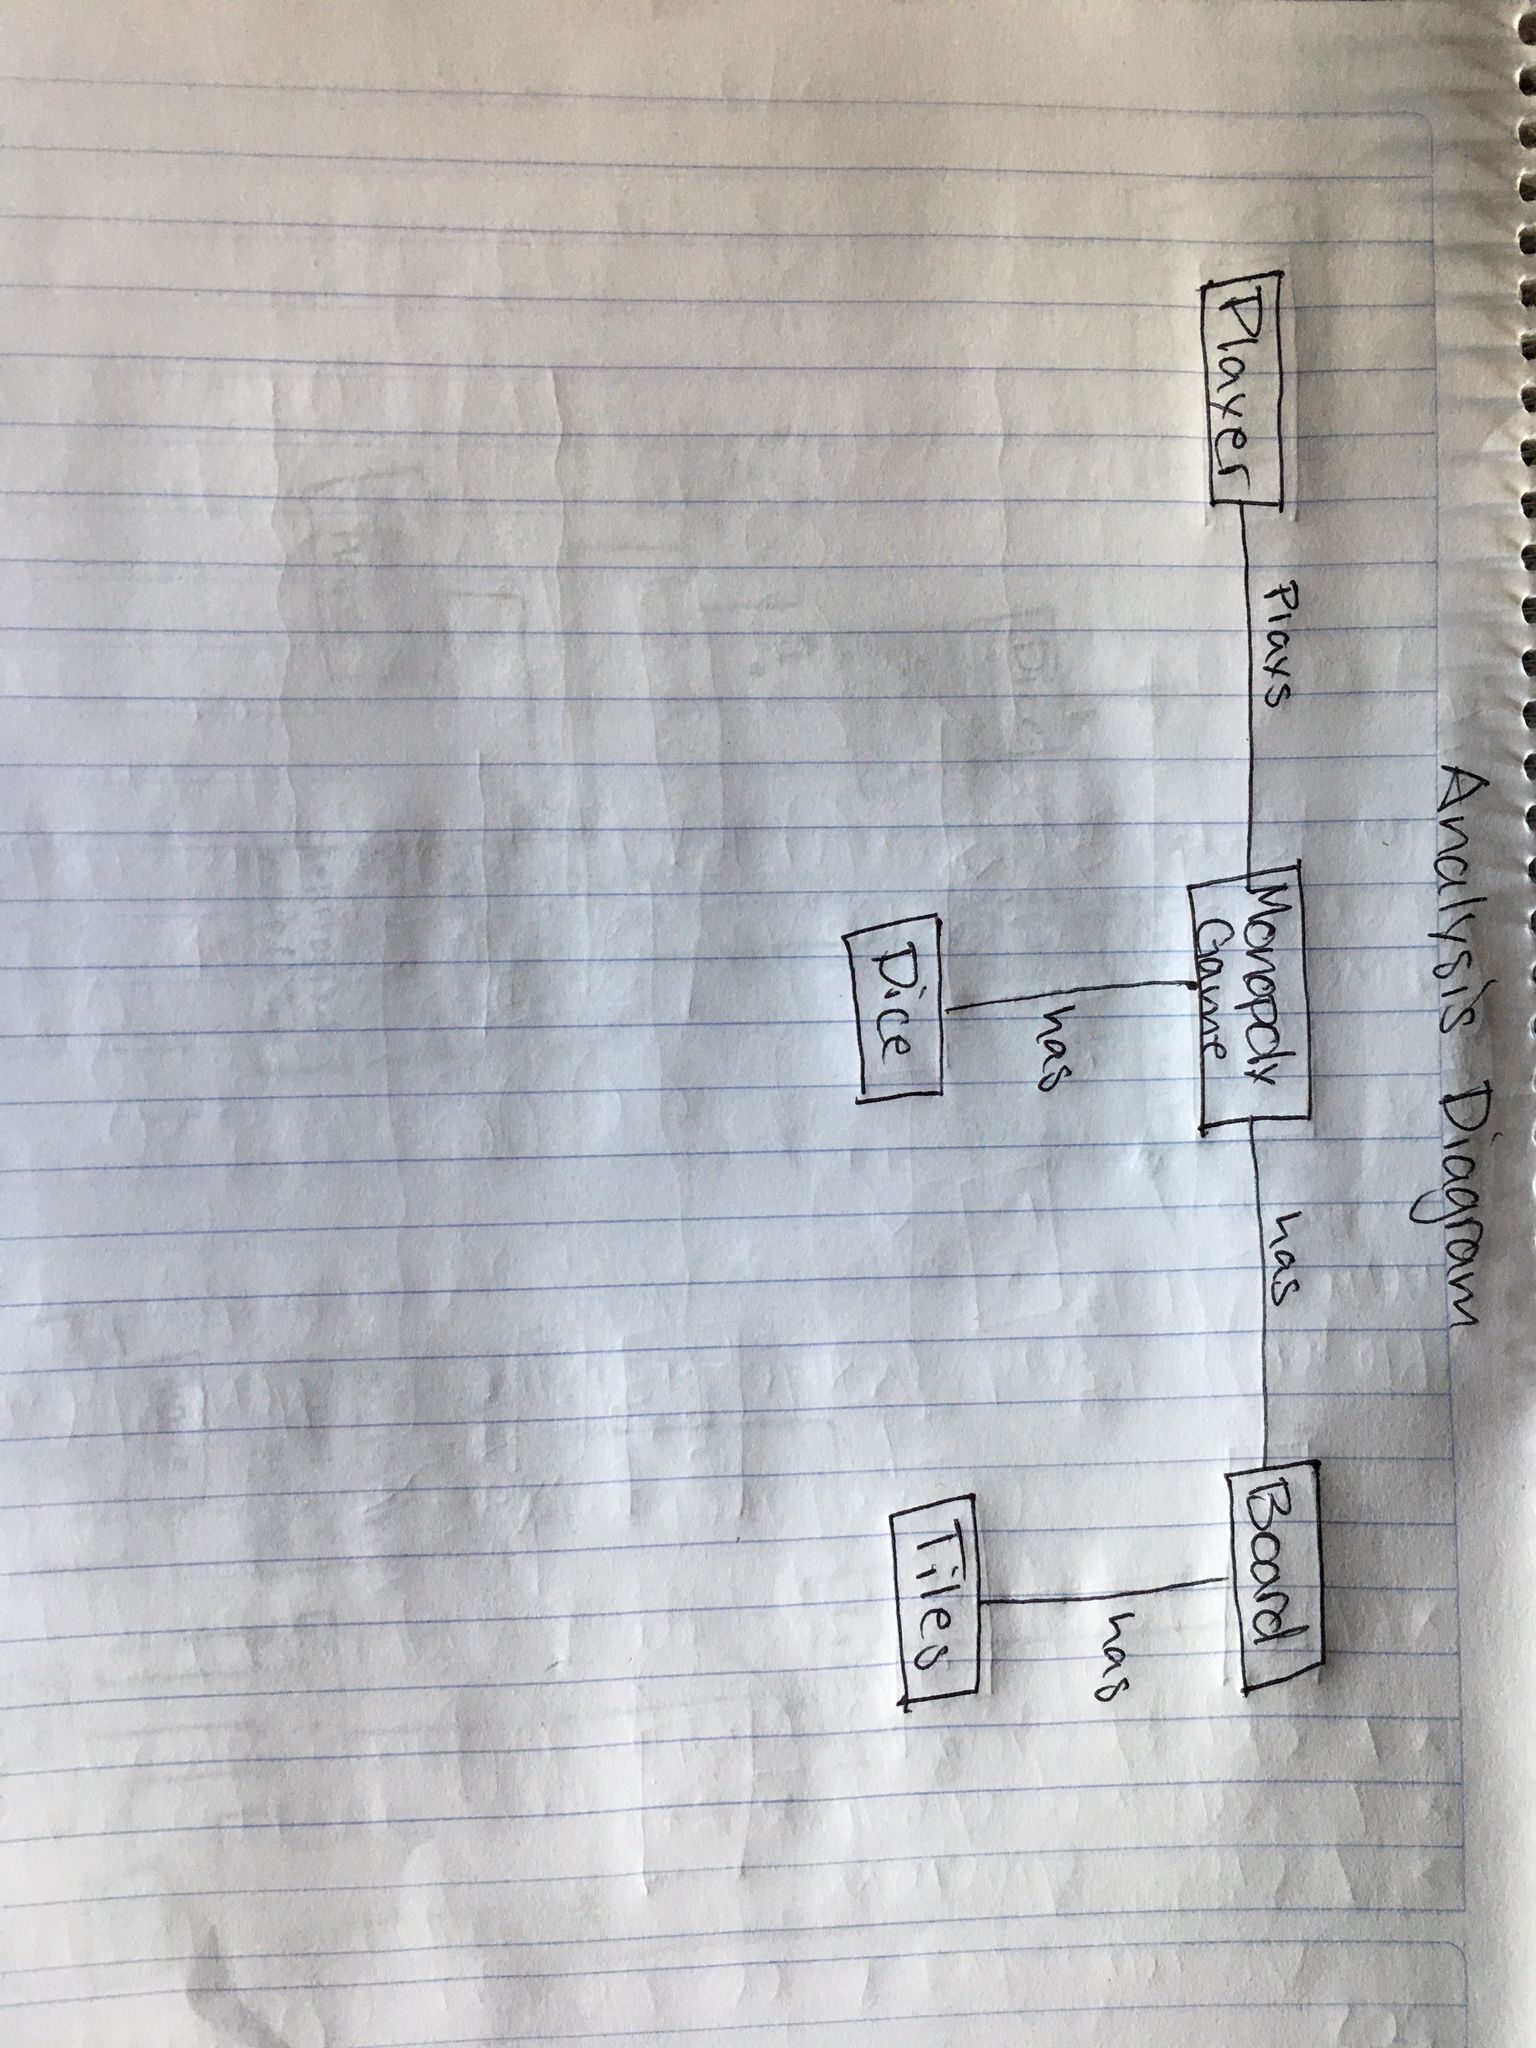 Analysis Diagram
Player
Plays
Monopoly
Game
has
Board
has
Dice
has
Tiles